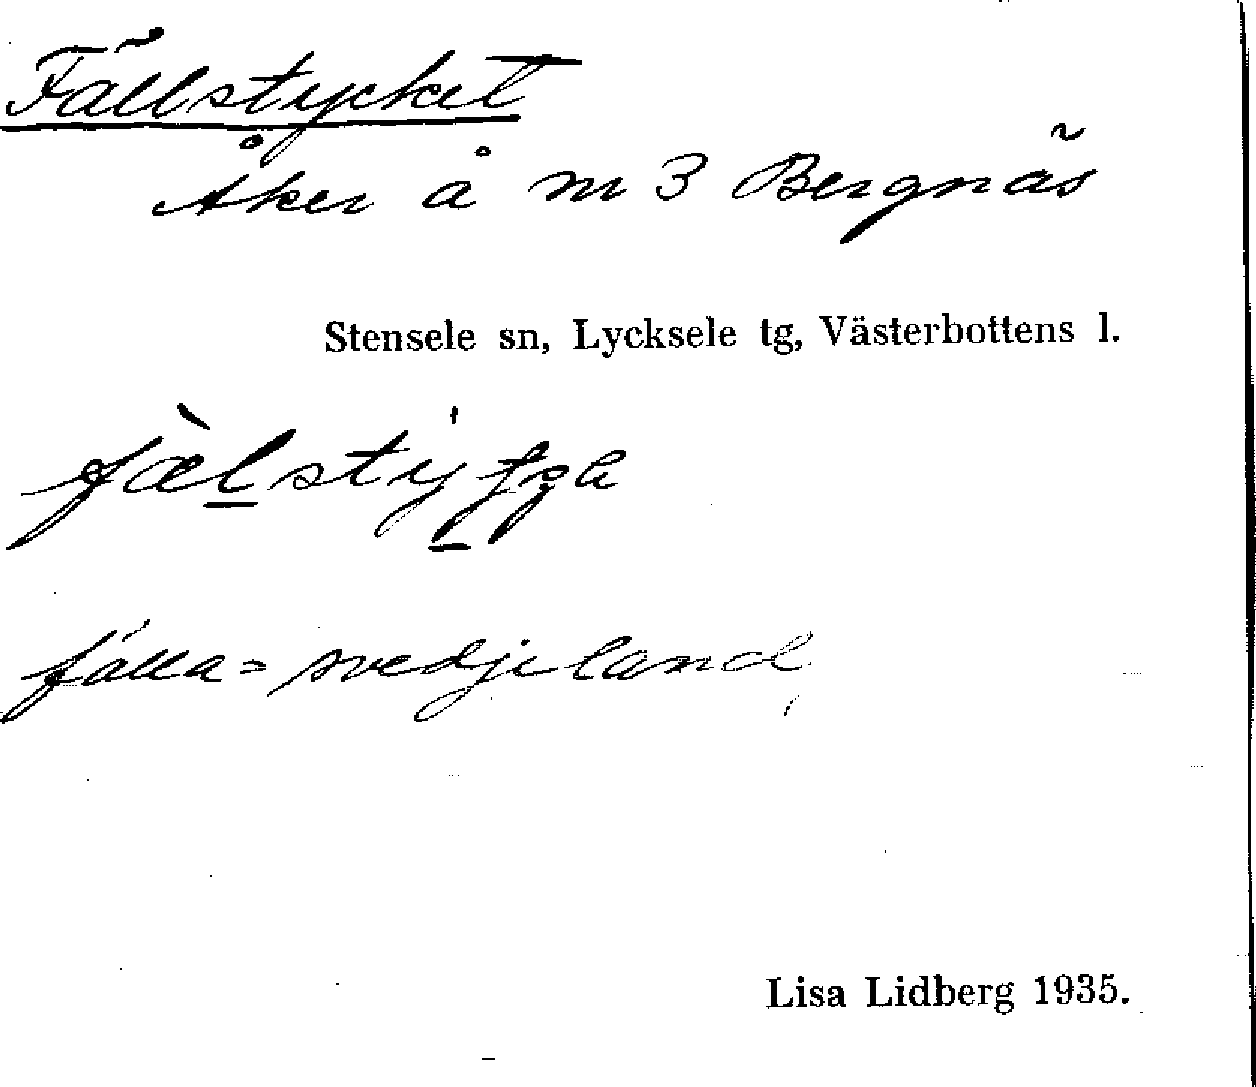 Fällstycket
Åker å nr 3 Bergnäs
Stensele sn, Lycksele tg, Västerbottens l.
fälla = svedjeland
Lisa Lidberg 1935.